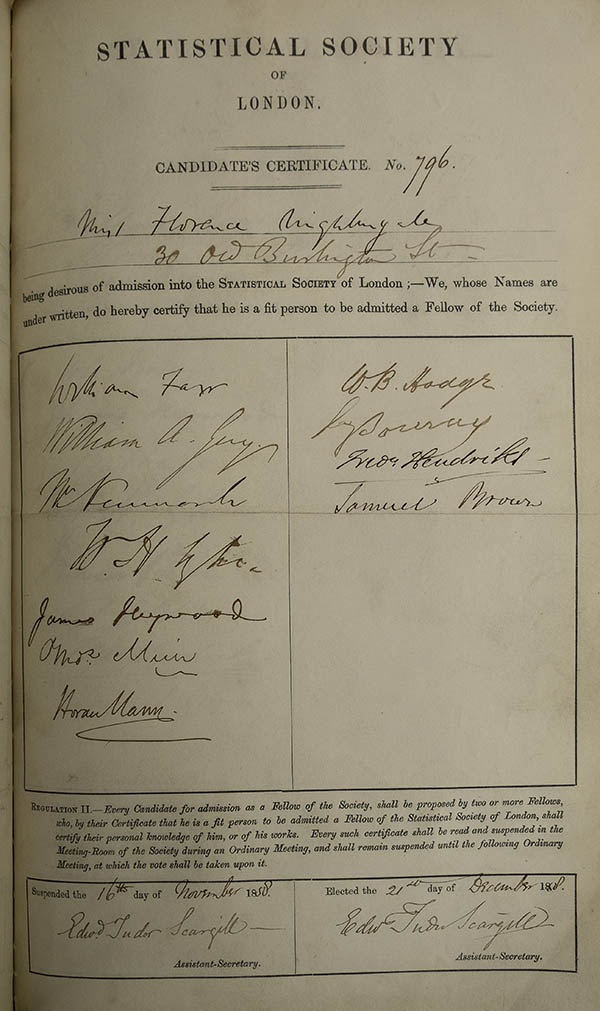 STATISTICAL SOCIETY
OF
LONDON.
CANDIDATE'S CERTIFICATE. No. 796.
Miss Florence Nightingale
30 Old Burlington St
being desirous of admission into the STATISTICAL SOCIETY of London ;—We, whose Names are
under written, do hereby certify that he is a fit person to be admitted a Fellow of the Society.
William Farr
William A. Guy
Wm Newmarch
W. H.
James Heywood
Thos. Muir
Horace Mann.
W. B. Hodge
Bowring
Fredk Hendriks
Samuel Brown
REGULATION II.—Every Candidate for admission as a Fellow of the Society, shall be proposed by two or more Fellows,
who, by their Certificate that he is a fit person to be admitted a Fellow of the Statistical Society of London, shall
certify their personal knowledge of him, or of his works. Every such certificate shall be read and suspended in the
Meeting-Room of the Society during an Ordinary Meeting, and shall remain suspended until the following Ordinary
Meeting, at which the vote shall be taken upon it.
Suspended the 16th day of November 1858.
Edwd Tudor Scargill
Assistant-Secretary.
Elected the 21st day of December 1858.
Edwd Tudor Scargill
Assistant-Secretary.